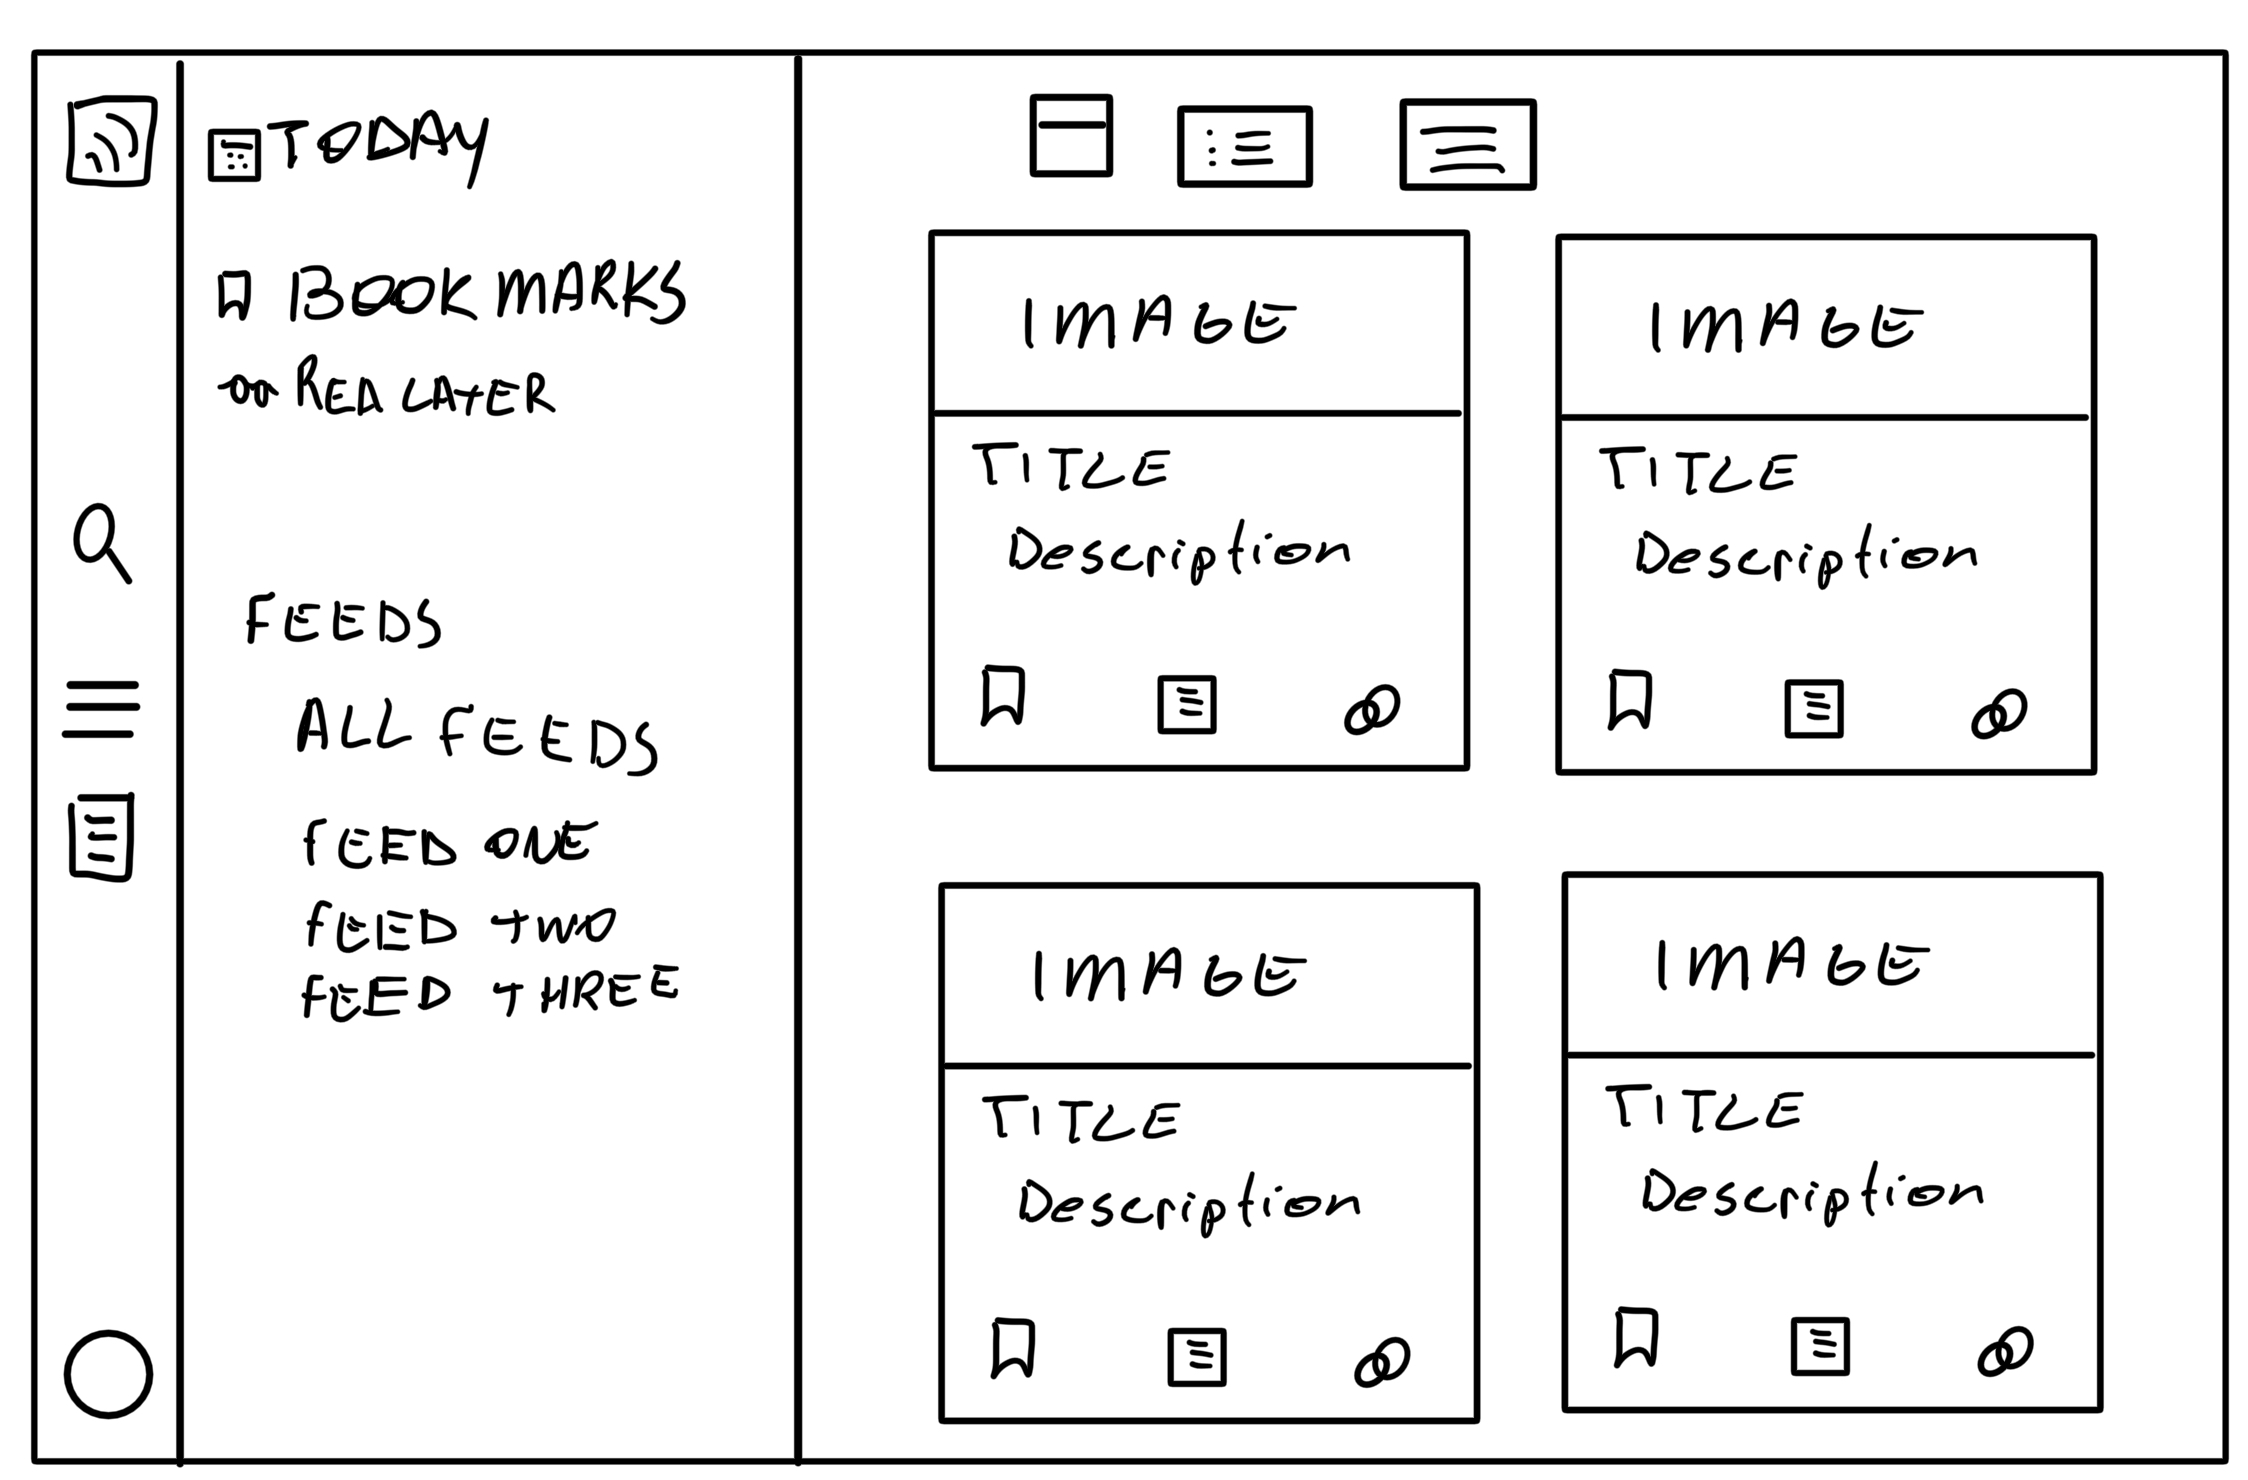 TODAY
BOOKMARKS
REA LATER
FEEDS
ALL FEEDS
FEED ONE
FEED TWO
FEED THREE
IMAGE
TITLE
Description
IMAGE
TITLE
Description
IMAGE
TITLE
Description
IMAGE
TITLE
Description